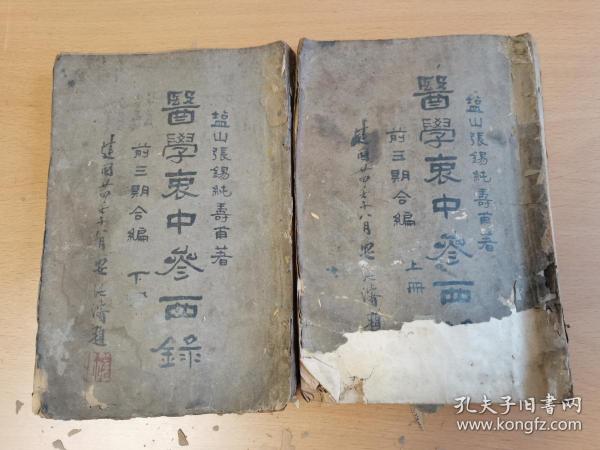 塩山張錫純壽甫著
醫學衷中參西錄
前三期合編 下
建國廿四年八月
題
塩山張錫純壽甫著
醫學衷中參西
前三期合編 上冊
建國廿四年八月
題
孔夫子旧书网
www.kongfz.com